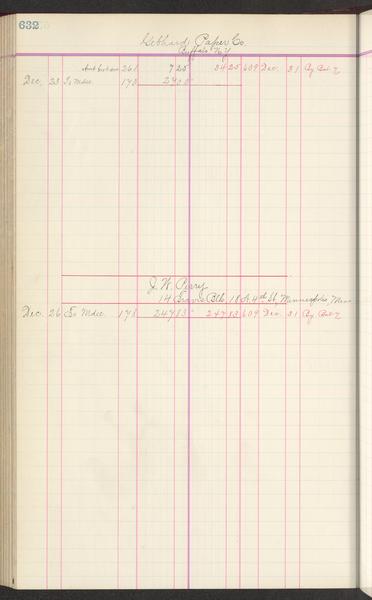 632
Gebhard Paper Co.
Buffalo N.Y.
Amt forward 261 7 25 34 25 609 Dec. 31 By Bal
Dec. 23 To Mdse. 178 27 00
J. W. Perry
14 Blk, 18 N. 4th St, Minneapolis, Minn
Dec. 26 To Mdse. 178 247 83 247 83 609 Dec. 31 By Bal